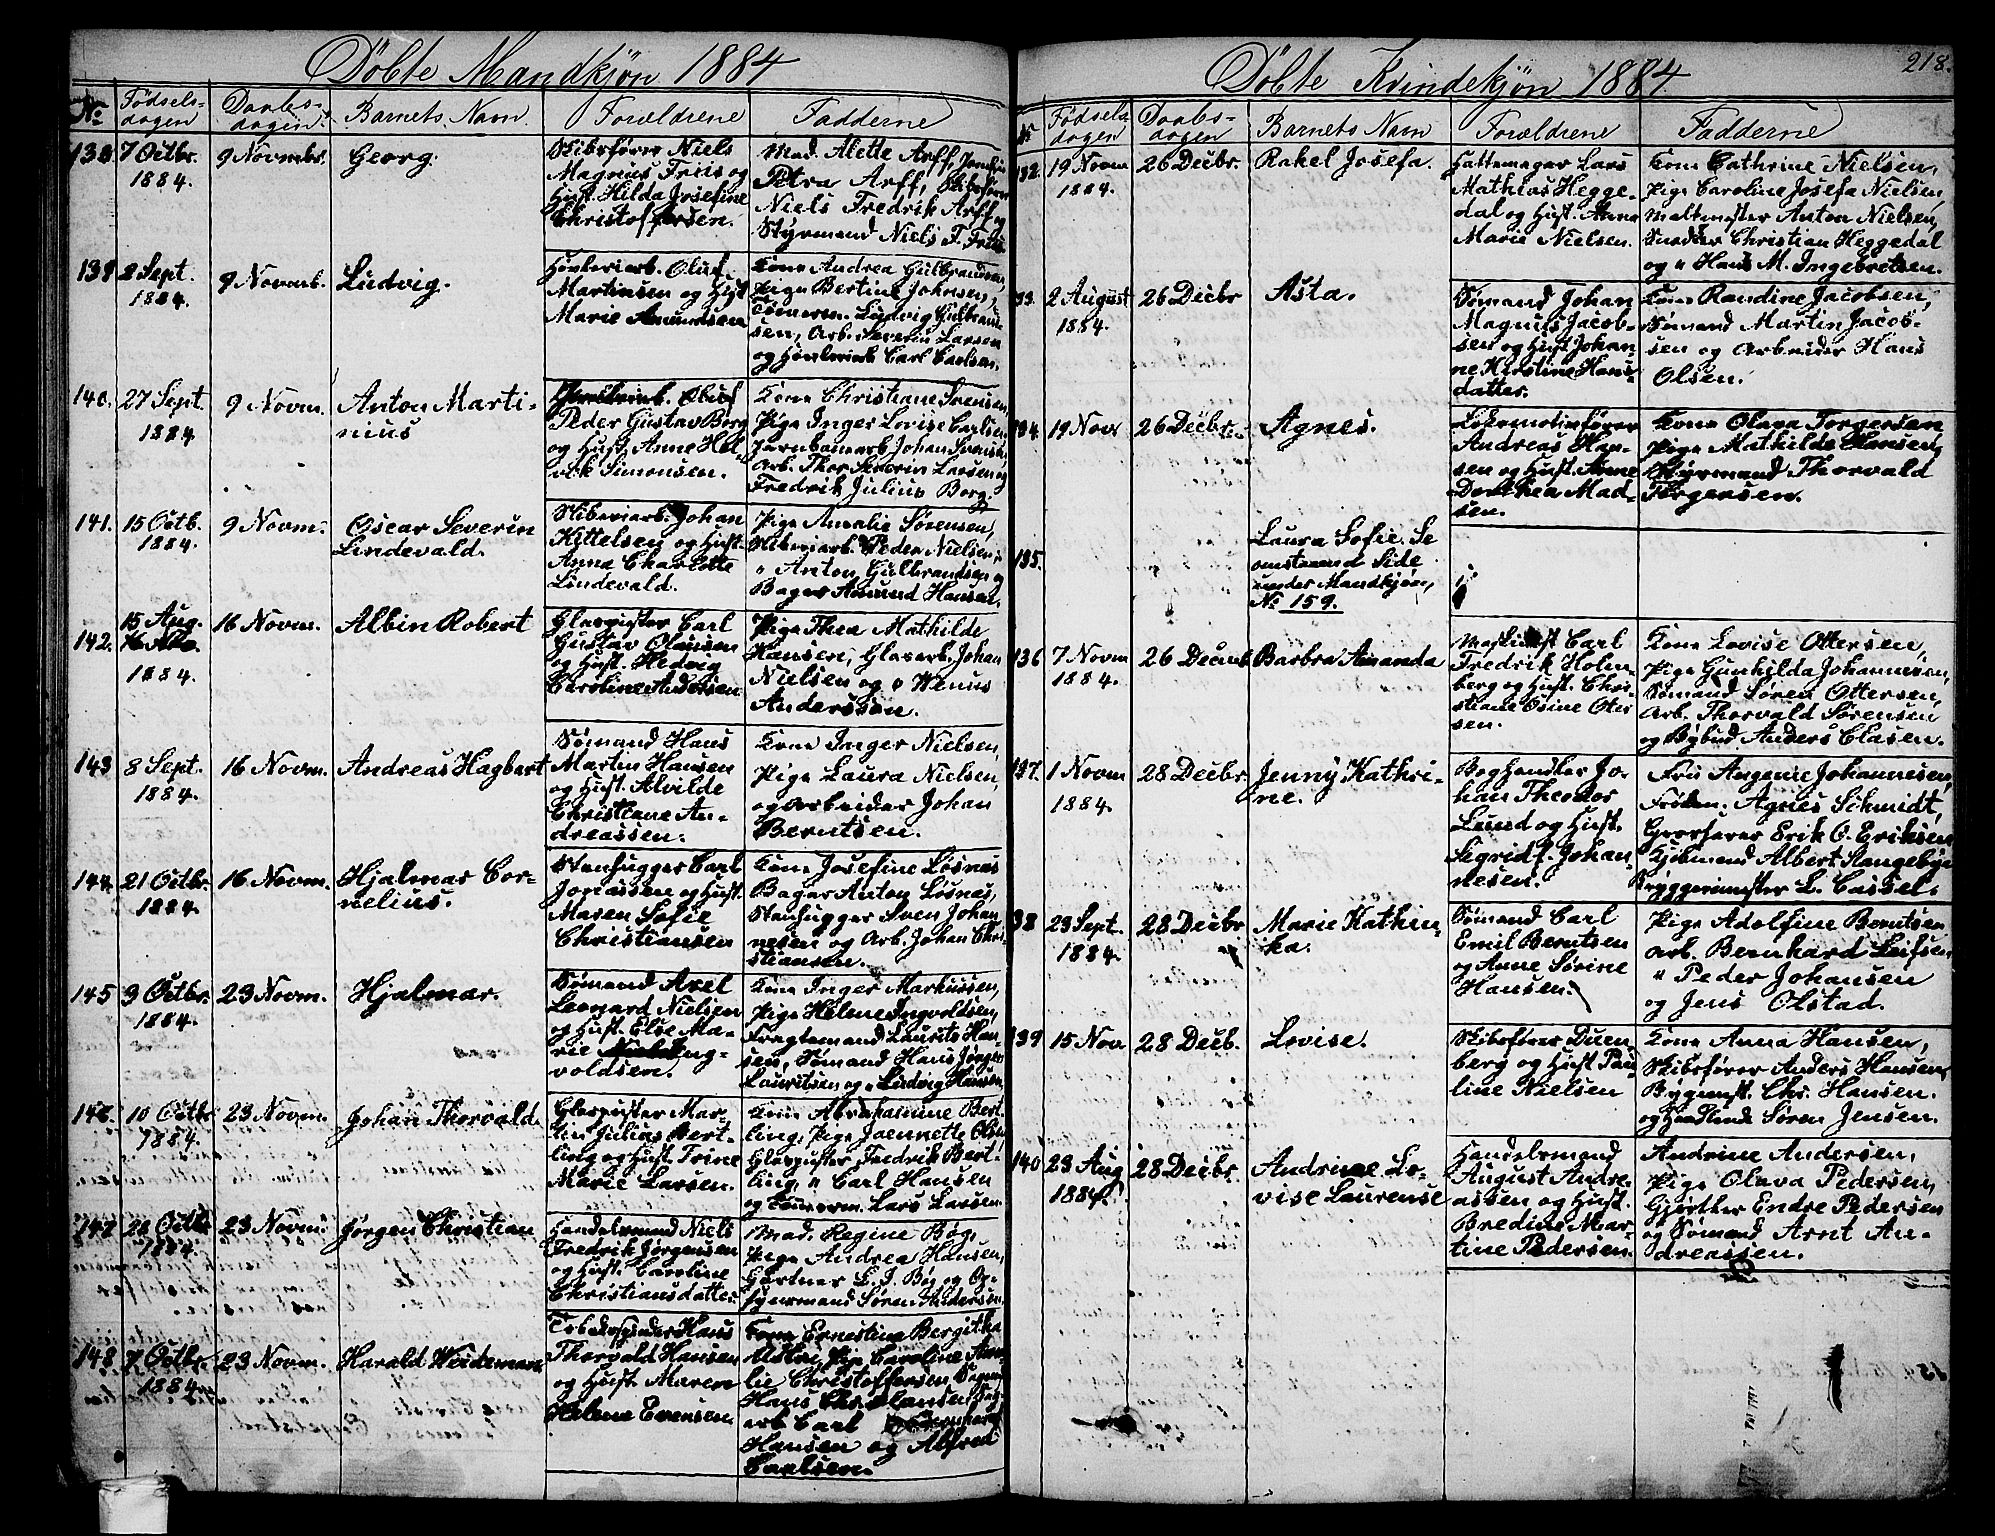 Döbte Mandkjøn 1884
No Fødsels- Daabs- Barnets Navn Forældrene Fadderne
dagen dagen
138 7 Octbr. 1884. 9 Novmbr. Georg.
Skibsfører Niels
Magnus Friis og
Hust. Hilda Josefine
Christoffersen.
Mad. Alette Arff,
Petra Arff, Skibsfører
Niels Fredrik Arff og
Styrmand Niels F. Friis
139 2 Sept. 1884. 9 Novmb. Ludvig.
Høvleriarb. Oluf
Martinsen og Hust
Marie Amundsen
Kone Andrea Gulbrandsen,
Pige Bertine Johnsen,
Tømerm. Ludvig Gulbrand-
sen, Arb. Severin Larsen
og Høvlerieb. Carl Carlsen.
140. 27 Sept. 1884 9 Novm. Anton Marti-
nius
Oluf
Peder Gustav Borg
og Hust. Anne Hel-
vik Simonsen.
Kone Christiane Svensen,
Pige Inger Lovise Carlsen
Jernbanearb Johan Svensen
Arb. Thor Severin Larsen og
Fredrik Julius Borg.
141. 15 Octb. 1884. 9 Novm. Oscar Severin
Lindevald.
Skiberiarb. Johan
Kittelsen og Hust.
Anna Charlotte
Lindevald.
Pige Amalie Sørensen,
Skiberiarb. Peder Nielsen,
" Anton Gulbrandsen og
Bager Amund Hansen.
142. 15 Aug. 1884. 16 Novm. Albin Robert
Glaspuster Carl
Gustav Olausen
og Hust. Hedvig
Caroline Andersen
Pige Thea Mathilde
Hansen, Glasarb. Johan
Nielsen og " Wenus
Anderssen.
143 8 Sept. 1884. 16 Novm. Andreas Hagbart
Sømand Hans
Martin Hansen
og Hust. Alvilde
Christiane An-
dreassen.
Kone Inger Nielsen,
Pige Laura Nielsen,
og Arbeider Johan
Berntsen.
144. 21 Octbr. 1884. 16 Novm. Hjalmar Cor-
nelius.
Stenhugger Carl
Jonassen og Hust.
Maren Sofie
Christiansen
Kone Josefine Løsnæs
Bager Anton Løsnæs,
Stenhugger Sven Johan
nesen og Arb. Johan Chri-
stiansen.
145 3 Octbr. 1884. 23 Novm. Hjalmar.
Sømand Axel
Leonard Nielsen
og Hust. Else Ma-
rie Ing-
voldsen.
Kone Inger Markussen,
Pige Helene Ingvoldsen,
Fragtemand Laurits Han-
sen, Sømand Hans Jørgen
Lauritsen og " Ludvig Hansen
146. 10 Octbr 1884. 23 Novm. Johan Thorvald.
Glaspuster Mar-
tin Julius Bert-
ling og Hust. Trine
Marie Larsen.
Kone Abrahamine Bert-
ling, Pige Jaennette Olsen
Glaspuster Fredrik Bert-
ling, " Carl Hansen
og Tømerm. Lars Larsen
147 Octbr 1884. 23 Novm. Jørgen Christian
Handelsmand Niels
Fredrik Jørgensen
og Hust. Caroline
Christiansdatter
Mad. Regine Bøg,
Pige Andrea Hansen,
Gartner L. J. Bøg og Op-
synsmand Søren Andersen
148 7 Octbr. 1884. 23 Novm. Harald Weideman
Hans
Thorvald Hansen
og Hust. Maren
Helene Evensen
Kone Ernestine Bergitha
Pige Caroline Ama-
lie Christoffersen
Hans Christiansen
arb Carl
Hansen og Alfred
Carlsen.
Döbte Kvindekjøn 1884. 218.
No Fødsels- Daabs- Barnets Navn Forældrene Fadderne
dagen dagen
132. 19 Novm 1884. 26 Decbr. Rakel Josefa.
Hattemager Lars
Mathias Hegge-
dal og Hust. Anna
Marie Nielsen.
Kone Cathrine Nielsen,
Pige Caroline Josefa Nielsen,
Maltmester Anton Nielsen,
Snedker Christian Heggedal
og " Hans M. Ingebretsen.
133. 2 August 1884. 26 Decbr Asta.
Sømand Johan
Magnus Jacob-
sen og Hust Johan-
ne Kirstine Hans-
datter.
Kone Randine Jacobsen,
Sømand Martin Jacob-
sen og Arbeider Hans
Olsen.
134. 19 Nov 26 Decbr. Agnes.
Lokomotivfører
Andreas Han-
sen og Hust. Anne
Dorthea Mad-
sen.
Kone Olava Torgersen
Pige Mathilde Hansen,
Styrmand Thorvald
Torgersen.
135. Laura Sofie. Se
omstaaend Side
under Mandkjøn,
No 159.
136 7 Novm 1884. 26 Decmb Barbra Amanda
Maskinist Carl
Fredrik Holm-
berg og Hust. Chri-
stiane Osine Otter-
sen.
Kone Lovise Ottersen,
Pige Gunhilda Johannesen,
Sømand Søren Ottersen,
Arb. Thorvald Sørensen
og Bybud Anders Clasen.
137. 1 Novm 1884. 28 Decbr. Jenny Kathri-
ne.
Boghandler Jo-
han Theodor
Lund og Hust.
Sigrid f. Johan-
nesen.
Frü Angenie Johannesen,
Frøken Agnes Schmidt,
Grosserer Erik O. Eriksen
Kjøbmand Albert Stangebye
Bryggerimester L. Cassel.
138 23 Sept. 1884. 28 Decbr Marie Kathin-
ka.
Sømand Carl
Emil Berntsen
og Anne Sørine
Hansen.
Pige Adolfine Berntsen
Arb. Bernhard Leifsen
" Peder Johansen
og Jens Olstad.
139 15 Nov 28 Decb. Lovise.
Skibsfører Duen-
berg og Hust Pau-
line Nielsen
Kone Anna Hansen,
Skibsfører Anders Hansen,
Bygmst. Chr. Hansen.
og Søren Jensen.
140 23 Aug 1884. 28 Decbr. Andrine Lo-
vise Laurense
Handelsmand
August Andre-
assen og Hust.
Bredine Mar-
tine Pedersen.
Andrine Andersen,
Pige Olava Pedersen,
Gjørtler Endre Pedersen
og Sømand Arnt An-
dreassen.